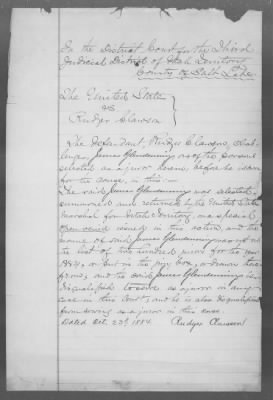 In the District Court for the Third
Judicial District of Utah Territory
County of Salt Lake.
The United States
vs
Rudger Clawson
The defendant, Rudger Clawson, chal-
lenges James Glendinning one of the persons
selected as a juror herein, before he is sworn
for the cause, in this:—
The said James Glendinning was selected,
summoned and returned by the United States
Marshal for Utah Territory, on a special
open venire issued in this action, and the
name of said James Glendinning was not on
the list of two hundred names for the year
1884, or put in the jury box, or drawn there-
from; and the said James Glendinning is
disqualified to serve as a juror in any
case in this Court, and he is also disqualified
from serving as a juror in this case.
Dated Oct. 1884. Rudger Clawson